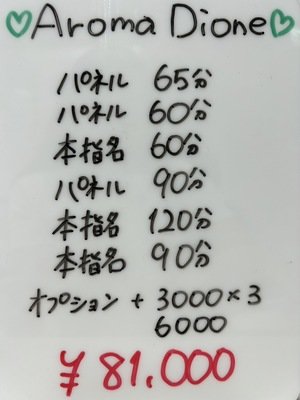 ♡Aroma Dione♡
パネル 65分
パネル 60分
本指名 60分
パネル 90分
本指名 120分
本指名 90分
オプション + 3000×3
6000
¥81.000